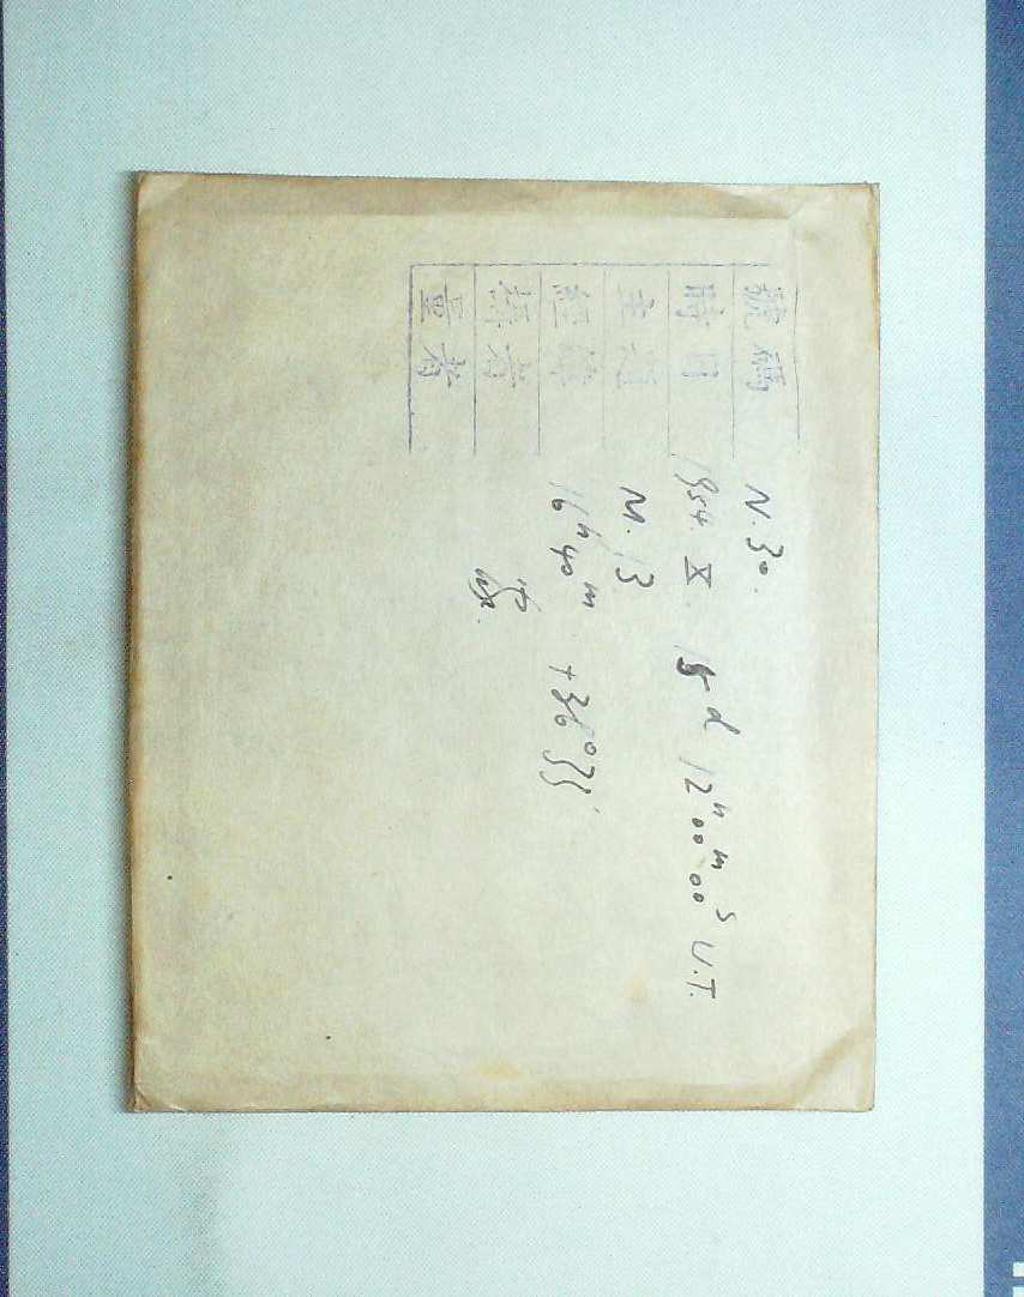 號碼 N. 30.
時日 1954. X. 15d 12h00m00s U.T.
主題 M. 13
經緯 16h40m +36°33'
攝者
量者